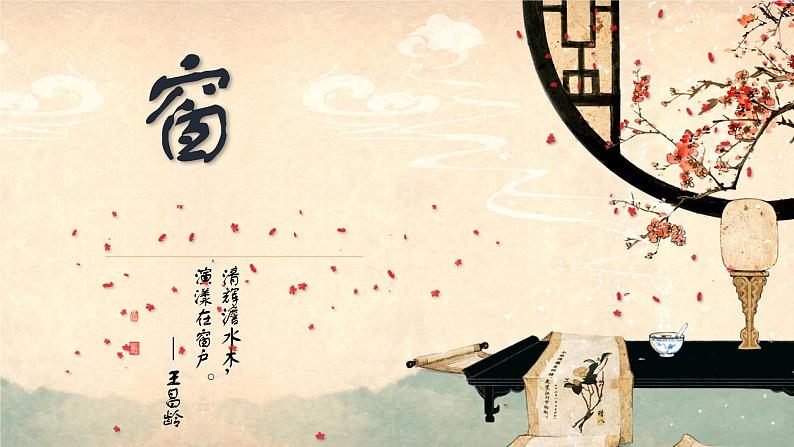 窗
清辉澹水木，
演漾在窗户。
——王昌龄